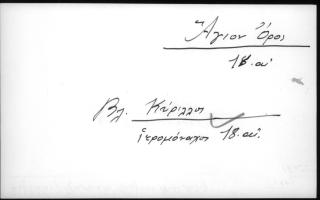 Ἅγιον Ὄρος
18. αἰ
Βλ. Κύριλλος
ἱερομόναχος 18. αἰ.